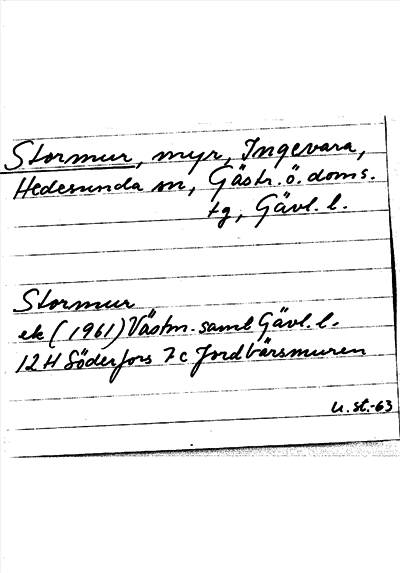 Stormur, myr, Ingevara,
Hedesunda sn, Gästr. ö. doms.
tg, Gävl. l.
Stormur
ek (1961) Västm. saml Gävl. l.
12 H Söderfors 7 c Jordbärsmuren
U. st.-63